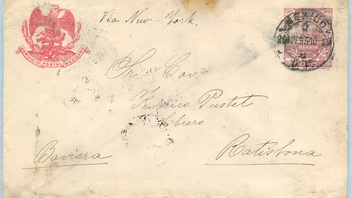 Via New-York.
SERVICIO POSTAL MEXICANO
MEXICO
Sr. Cav.
Federico Pustet
Baviera
Ratisbona